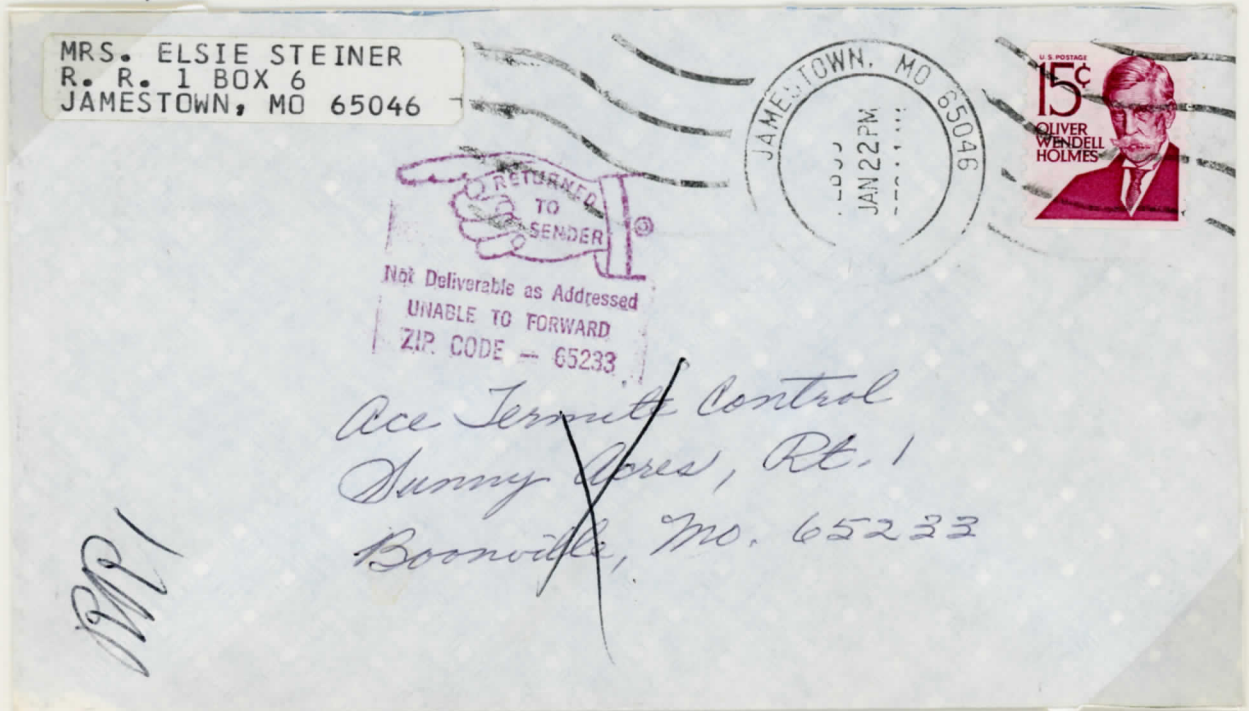 MRS. ELSIE STEINER
R. R. 1 BOX 6
JAMESTOWN, MO 65046
JAMESTOWN, MO 65046
JAN 22 PM
U.S. POSTAGE
15¢
OLIVER
WENDELL
HOLMES
RETURNED
TO
SENDER
Not Deliverable as Addressed
UNABLE TO FORWARD
ZIP CODE — 65233
Ace Termite Control
Sunny Acres, Rt. 1
Boonville, Mo. 65233